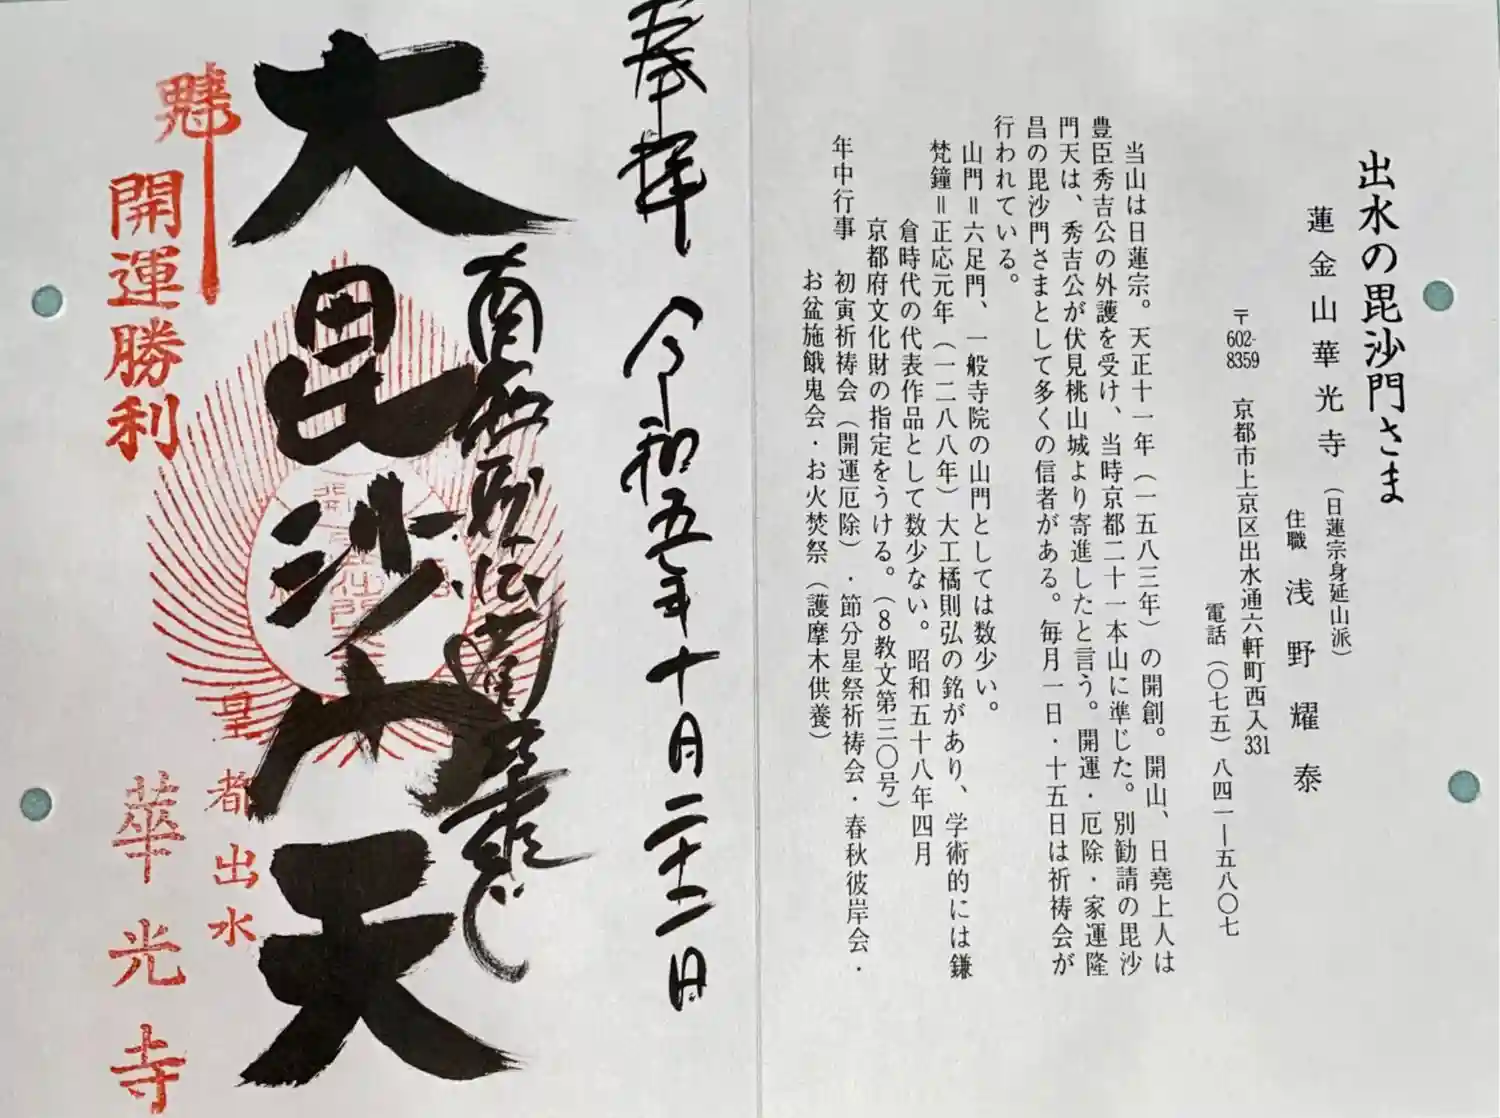 出水の毘沙門さま
蓮金山華光寺（日蓮宗身延山派）
住職 浅野耀泰
〒602-8359 京都市上京区出水通六軒町西入331
電話（〇七五）八四一―五八〇七
当山は日蓮宗。天正十一年（一五八三年）の開創。開山、日堯上人は
豊臣秀吉公の外護を受け、当時京都二十一本山に準じた。別勧請の毘沙
門天は、秀吉公が伏見桃山城より寄進したと言う。開運・厄除・家運隆
昌の毘沙門さまとして多くの信者がある。毎月一日・十五日は祈祷会が
行われている。
山門＝六足門、一般寺院の山門としては数少い。
梵鐘＝正応元年（一二八八年）大工橘則弘の銘があり、学術的には鎌
倉時代の代表作品として数少ない。昭和五十八年四月
京都府文化財の指定をうける。（8教文第三〇号）
年中行事 初寅祈祷会（開運厄除）・節分星祭祈祷会・春秋彼岸会・
お盆施餓鬼会・お火焚祭（護摩木供養）
奉拝 令和五年十月二十二日
南無妙法蓮華経
大毘沙門天
皇都出水
開運勝利
華光寺